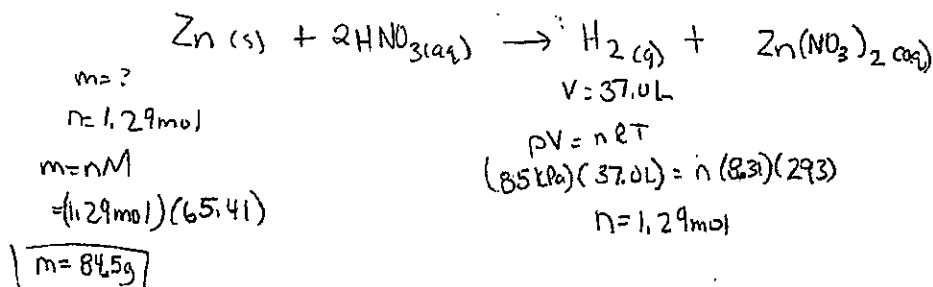 Zn (s) + 2HNO3(aq) → H2 (g) + Zn(NO3)2 (aq)
m= ?
n= 1.29mol
m=nM
=(1.29mol)(65.41)
m= 84.5g
V= 37.0L
pV= nRT
(85 kPa)(37.0L) = n (8.31)(293)
n= 1.29mol